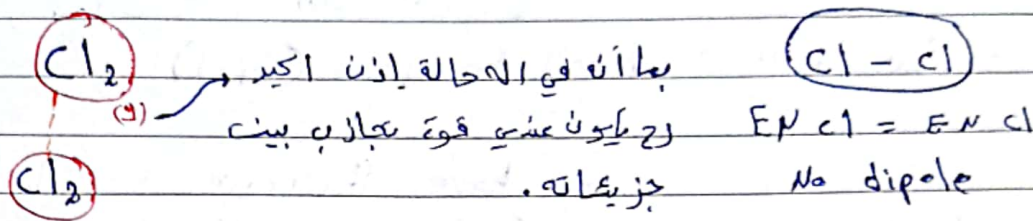 Cl2 بما أنه في الـ حالة إذن اكيد Cl - Cl
(g) رح يكون عندي قوة تجاذب بين EN Cl = EN Cl
Cl2 جزيئاته. No dipole